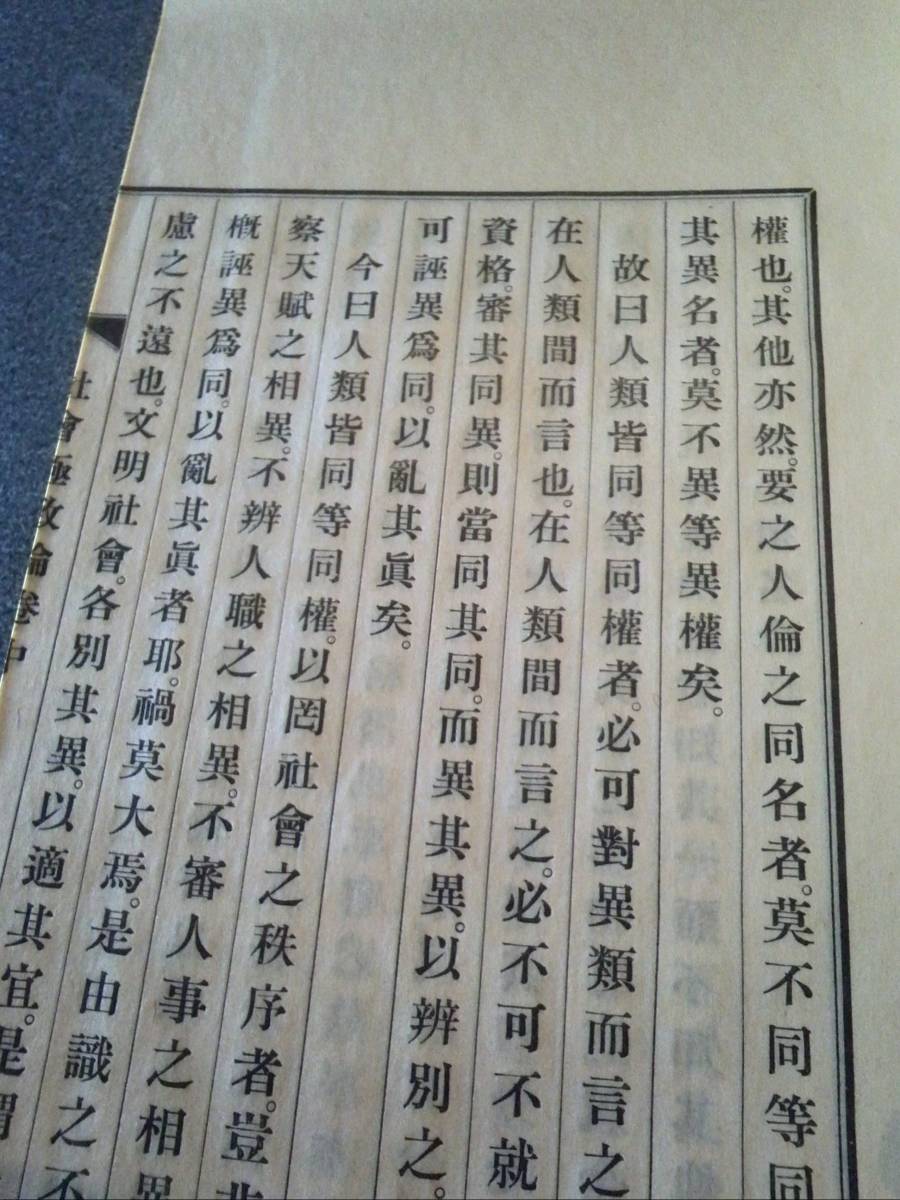 權也。其他亦然。要之人倫之同名者。莫不同等同
其異名者。莫不異等異權矣。
故曰人類皆同等同權者。必可對異類而言之
在人類間而言也。在人類間而言之。必不可不就
資格。審其同異。則當同其同。而異其異。以辨別之。
可誣異爲同。以亂其眞矣。
今曰人類皆同等同權。以罔社會之秩序者。豈非
察天賦之相異。不辨人職之相異。不審人事之相異
概誣異爲同。以亂其眞者耶。禍莫大焉。是由識之不
慮之不遠也。文明社會。各別其異。以適其宜。是謂
社會極致論卷中